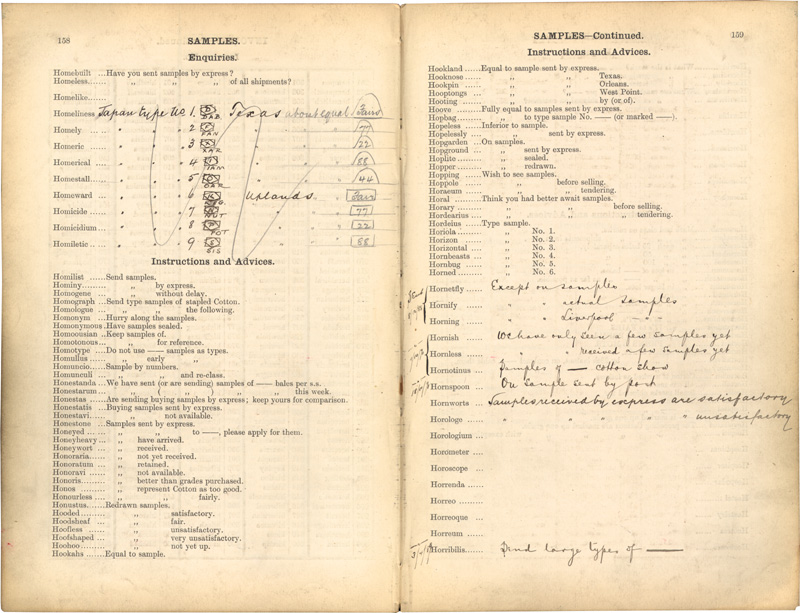 158
SAMPLES.
Enquiries.
Homebuilt ...Have you sent samples by express?
Homeless...... ,, ,, ,, of all shipments?
Homelike......
Homeliness Japan type No 1. Texas about equal Fair
Homely ... " " " 2 " " " 77
Homeric ... " " " 3 " " " 22
Homerical ... " " " 4 " " " 88
Homestall...... " " " 5 " " " 44
Homeward ... " " " 6 Uplands. " " Fair
Homicide ... " " " 7 " " " 77
Homicidium... " " " 8 " " " 22
Homiletic ... " " " 9 " " " 88
Instructions and Advices.
Homilist ......Send samples.
Hominy......... ,, by express.
Homogene ... ,, without delay.
Homograph ...Send type samples of stapled Cotton.
Homologue ... ,, ,, the following.
Homonym ...Hurry along the samples.
Homonymous.Have samples sealed.
Homoousian ...Keep samples of.
Homotonous... ,, for reference.
Homotype ...Do not use —— samples as types.
Homulus ...... ,, early ,,
Homuncio......Sample by numbers.
Homunculi ... ,, and re-class.
Honestanda ...We have sent (or are sending) samples of —— bales per s.s.
Honestarum... ,, ( ,, ) ,, ,, this week.
Honestas ......Are sending buying samples by express; keep yours for comparison.
Honestatis ...Buying samples sent by express.
Honestavi...... ,, not available.
Honestone ...Samples sent by express.
Honeyed ...... ,, ,, to ——, please apply for them.
Honeyheavy... ,, have arrived.
Honeywort ... ,, received.
Honoraria...... ,, not yet received.
Honoratum ... ,, retained.
Honoravi ...... ,, not available.
Honoris......... ,, better than grades purchased.
Honos ......... ,, represent Cotton as too good.
Honourless ... ,, ,, fairly.
Honustus......Redrawn samples.
Hooded......... ,, satisfactory.
Hoodsheaf ... ,, fair.
Hoofless ...... ,, unsatisfactory.
Hoofshaped ... ,, very unsatisfactory.
Hoohoo......... ,, not yet up.
Hookahs ......Equal to sample.
159
SAMPLES—Continued.
Instructions and Advices.
Hookland ......Equal to sample sent by express.
Hooknose ...... ,, ,, Texas.
Hookpin ...... ,, ,, Orleans.
Hooptongs ... ,, ,, West Point.
Hooting ...... ,, ,, by (or of).
Hoove .........Fully equal to samples sent by express.
Hopbag......... ,, to type sample No. —— (or marked ——).
Hopeless ......Inferior to sample.
Hopelessly ... ,, ,, sent by express.
Hopgarden ...On samples.
Hopground ... ,, sent by express.
Hoplite ......... ,, sealed.
Hopper ......... ,, redrawn.
Hopping ......Wish to see samples.
Hoppole ...... ,, before selling.
Horaeum ...... ,, ,, tendering.
Horal .........Think you had better await samples.
Horary ......... ,, ,, before selling.
Hordearius ... ,, ,, ,, tendering.
Hordeius ......Type sample.
Horiola......... ,, No. 1.
Horizon ...... ,, No. 2.
Horizontal ... ,, No. 3.
Hornbeasts ... ,, No. 4.
Hornbug ...... ,, No. 5.
Horned......... ,, No. 6.
Hornetfly...... Except on samples
Hornify ...... " " actual samples
Horning ...... " " Liverpool " "
Hornish ...... We have only seen a few samples yet
Hornless ...... " " received a few samples yet
Hornotinus ... Samples of — cotton show
Hornspoon ... On sample sent by post
Hornworts ... Samples received by express are satisfactory
Horologe ...... " " " " " unsatisfactory
Horologium ...
Horometer ...
Horoscope ...
Horrenda ......
Horreo .........
Horreoque ...
Horreum ......
Horribilis...... Send large types of ——